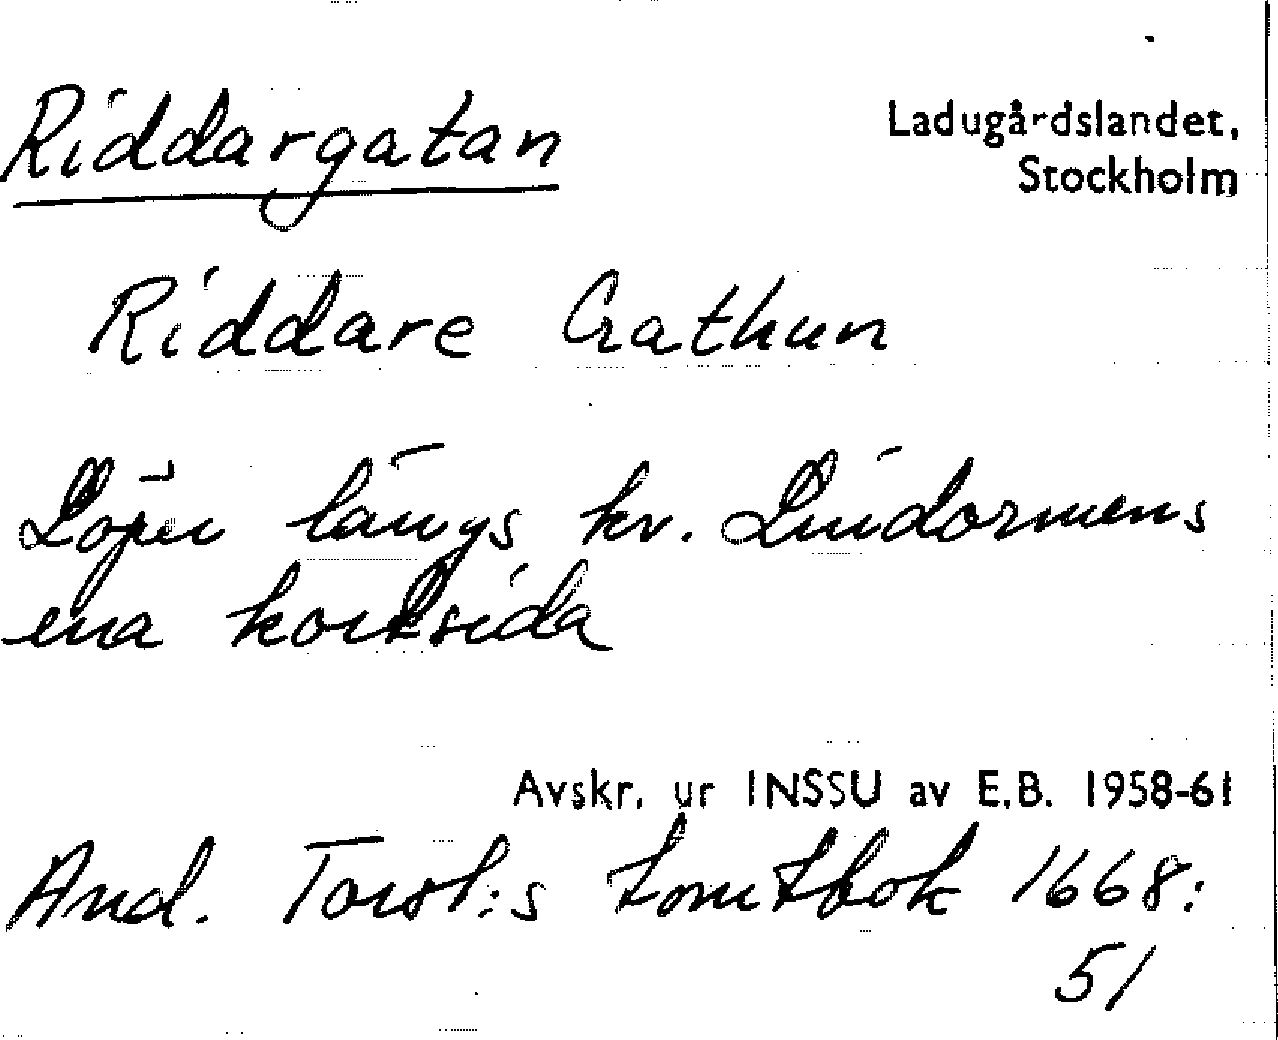 Riddargatan
Ladugårdslandet,
Stockholm
Riddare Gathun
Löper längs kv. Lindormens
ena kortsida
Avskr. ur INSSU av E.B. 1958-61
And. Torst:s tomtbok 1668:
51